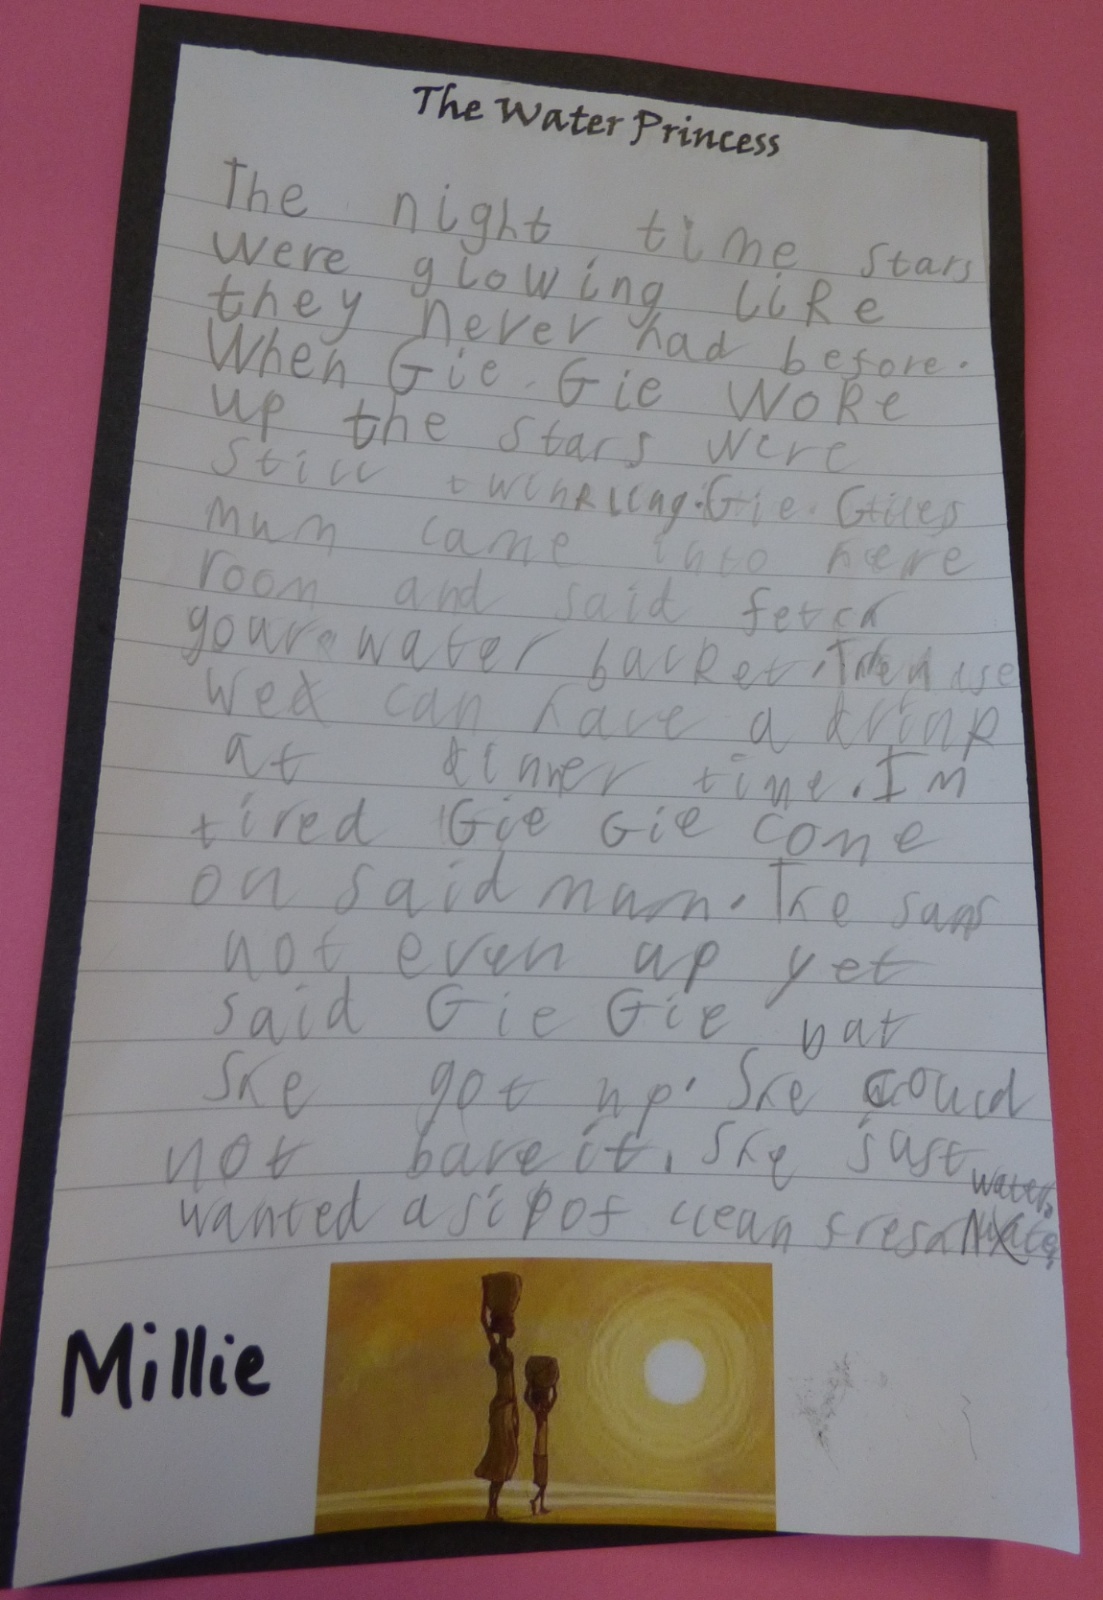 The Water Princess
The night time stars
were glowing like
they never had before.
When Gie.Gie woke
up the stars were
still twinkling.Gie.Gies
mum came into here
room and said fetch
your water bucket. Then
we can have a drink
at dinner time. Im
tired Gie Gie come
on said mum. The suns
not even up yet
said Gie Gie but
She got up. She could
not bare it. She just
wanted a sip of clean fresh water.
Millie